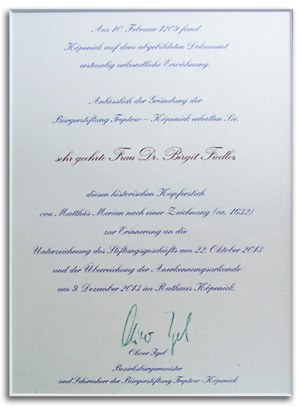 Am 10. Februar 1209 fand
Köpenick auf dem abgebildeten Dokument
erstmalig urkundliche Erwähnung.
Anlässlich der Gründung der
Bürgerstiftung Treptow – Köpenick erhalten Sie,
sehr geehrte Frau Dr. Birgit Fiedler
diesen historischen Kupferstich
von Matthäs Merian nach einer Zeichnung (ca. 1632)
zur Erinnerung an die
Unterzeichnung des Stiftungsgeschäfts am 22. Oktober 2013
und der Überreichung der Anerkennungsurkunde
am 9. Dezember 2013 im Rathaus Köpenick.
Oliver Igel
Oliver Igel
Bezirksbürgermeister
und Schirmherr der Bürgerstiftung Treptow-Köpenick